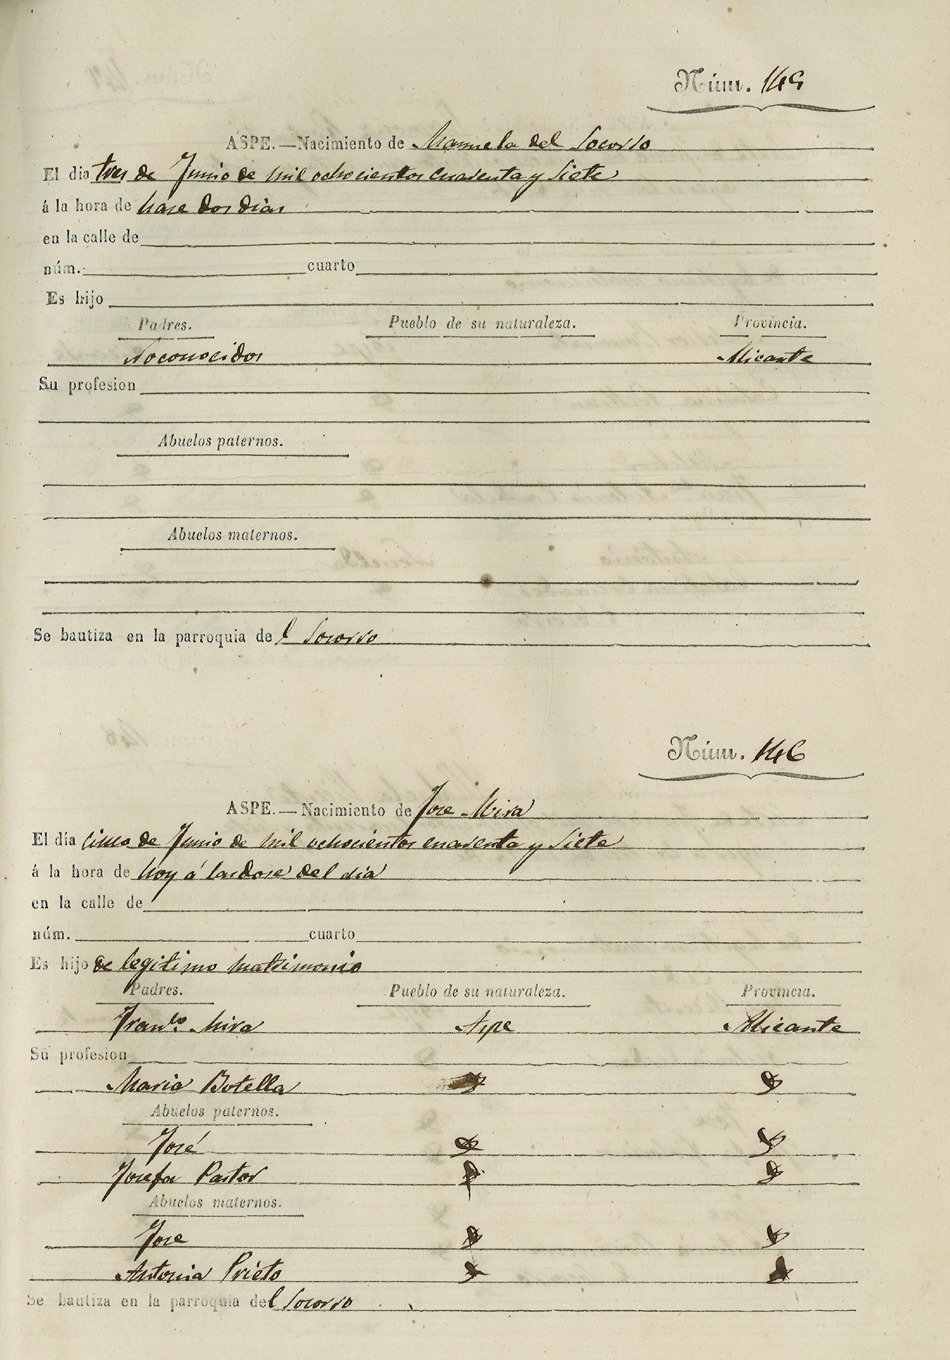 Núm. 145
ASPE.—Nacimiento de Manuela del Socorro
El dia tres de Junio de mil ochocientos cuarenta y siete
á la hora de hase dos dias
en la calle de
núm. cuarto
Es hijo
Padres. Pueblo de su naturaleza. Provincia.
No conocidos Alicante
Su profesion
Abuelos paternos.
Abuelos maternos.
Se bautiza en la parroquia del Socorro
Núm. 146
ASPE.—Nacimiento de Jose Mira
El día cinco de Junio de mil ochocientos cuarenta y siete
á la hora de hoy á las dose del dia
en la calle de
núm. cuarto
Es hijo de legitimo matrimonio
Padres. Pueblo de su naturaleza. Provincia.
Franco. Mira Aspe Alicante
Su profesion
Maria Botella
Abuelos paternos.
José
Josefa Pastor
Abuelos maternos.
Jose
Antonia Prieto
Se bautiza en la parroquia del Socorro